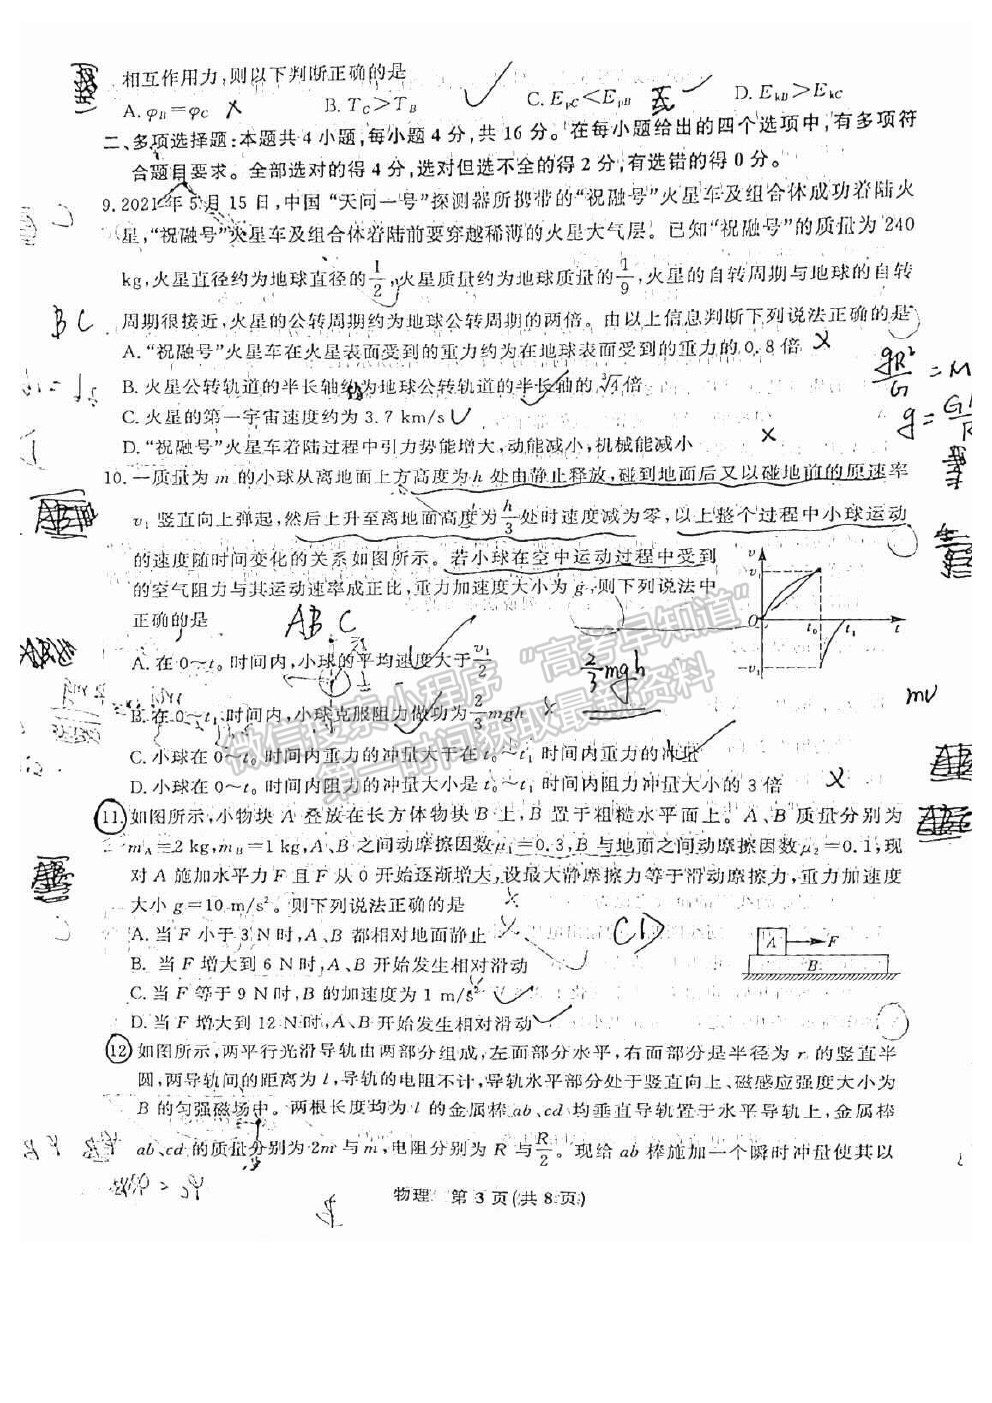 相互作用力,则以下判断正确的是
A. φB=φC B. TC>TB C. EpC<EpB D. EkB>EkC
二、多项选择题:本题共 4 小题,每小题 4 分,共 16 分。在每小题给出的四个选项中,有多项符
合题目要求。全部选对的得 4 分,选对但选不全的得 2 分,有选错的得 0 分。
9. 2021 年 5 月 15 日,中国“天问一号”探测器所携带的“祝融号”火星车及组合体成功着陆火
星,“祝融号”火星车及组合体着陆前要穿越稀薄的火星大气层。已知“祝融号”的质量为 240
kg,火星直径约为地球直径的1/2,火星质量约为地球质量的1/9,火星的自转周期与地球的自转
BC
周期很接近,火星的公转周期约为地球公转周期的两倍。由以上信息判断下列说法正确的是
A.“祝融号”火星车在火星表面受到的重力约为在地球表面受到的重力的 0.8 倍
B. 火星公转轨道的半长轴约为地球公转轨道的半长轴的∛4倍
gR²/G = M
C. 火星的第一宇宙速度约为 3.7 km/s
D.“祝融号”火星车着陆过程中引力势能增大,动能减小,机械能减小
10. 一质量为 m 的小球从离地面上方高度为 h 处由静止释放,碰到地面后又以碰地前的原速率
v1 竖直向上弹起,然后上升至离地面高度为h/3处时速度减为零,以上整个过程中小球运动
的速度随时间变化的关系如图所示。若小球在空中运动过程中受到
的空气阻力与其运动速率成正比,重力加速度大小为 g,则下列说法中
正确的是
ABC
v
v1
O
t0
t1
t
-v1
A. 在 0～t0 时间内,小球的平均速度大于v1/2
2/3 mgh
B. 在 0～t1 时间内,小球克服阻力做功为2/3mgh
mv
C. 小球在 0～t0 时间内重力的冲量大于在 t0～t1 时间内重力的冲量
D. 小球在 0～t0 时间内阻力的冲量大小是 t0～t1 时间内阻力冲量大小的 3 倍
11. 如图所示,小物块 A 叠放在长方体物块 B 上,B 置于粗糙水平面上。A、B 质量分别为
mA=2 kg,mB=1 kg,A、B 之间动摩擦因数μ1=0.3,B 与地面之间动摩擦因数μ2=0.1,现
对 A 施加水平力 F 且 F 从 0 开始逐渐增大,设最大静摩擦力等于滑动摩擦力,重力加速度
大小 g=10 m/s²。则下列说法正确的是
CD
A. 当 F 小于 3 N 时,A、B 都相对地面静止
B. 当 F 增大到 6 N 时,A、B 开始发生相对滑动
C. 当 F 等于 9 N 时,B 的加速度为 1 m/s²
D. 当 F 增大到 12 N 时,A、B 开始发生相对滑动
A
F
B
12. 如图所示,两平行光滑导轨由两部分组成,左面部分水平,右面部分是半径为 r 的竖直半
圆,两导轨间的距离为 l,导轨的电阻不计,导轨水平部分处于竖直向上、磁感应强度大小为
B 的匀强磁场中。两根长度均为 l 的金属棒 ab、cd 均垂直导轨置于水平导轨上,金属棒
ab、cd 的质量分别为 2m 与 m,电阻分别为 R 与R/2。现给 ab 棒施加一个瞬时冲量使其以
物理 第 3 页(共 8 页)
“高考早知道”
微信搜索小程序
第一时间获取最新资料